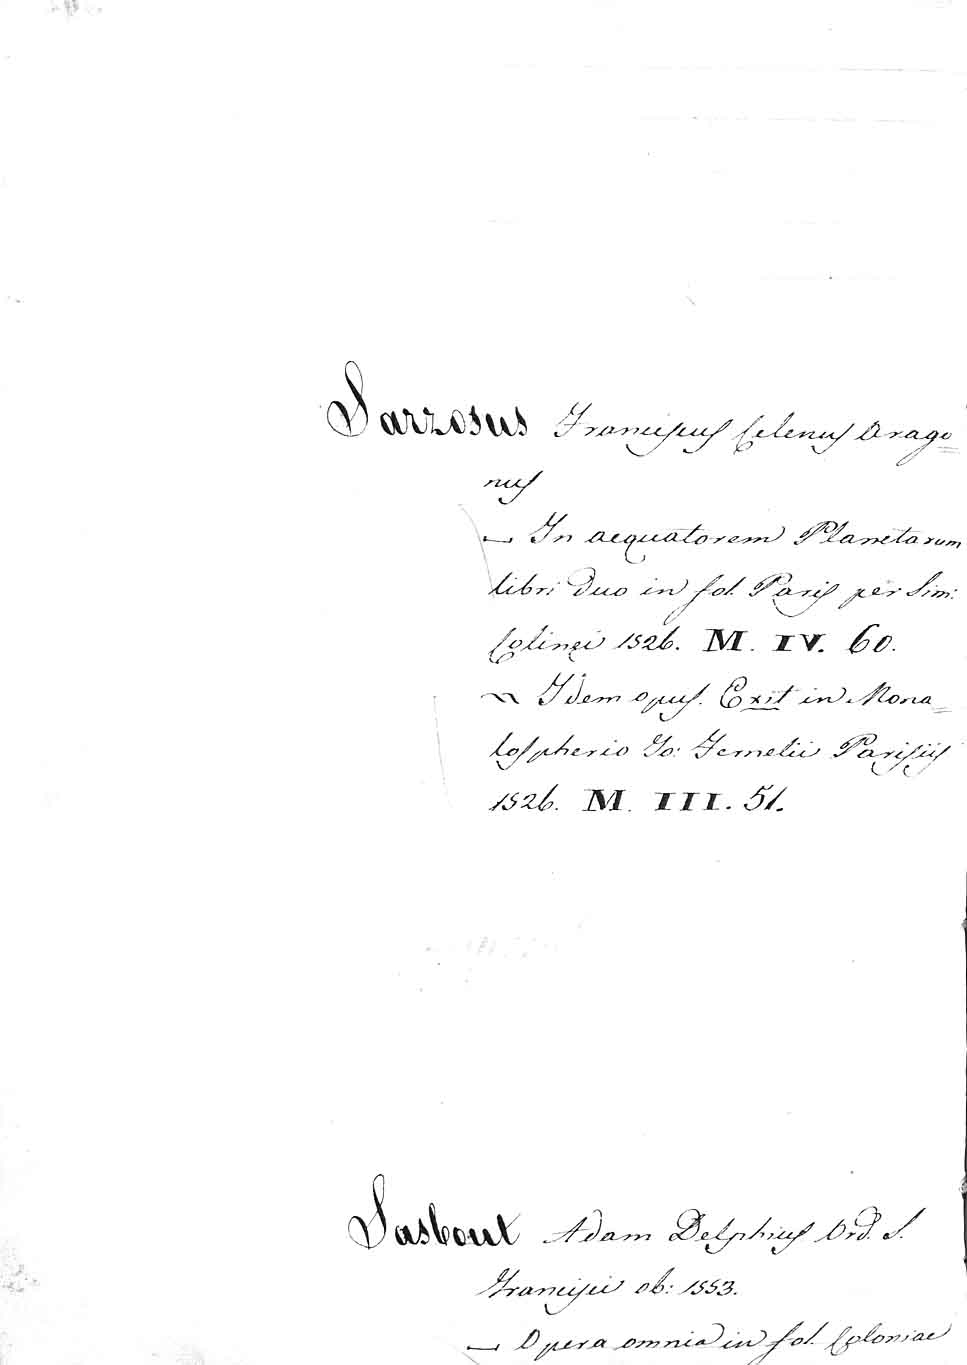 Sarzosus Franciscus Celenus Arago=
nus
— In aequatorem Planetarum
libri Duo in fol. Paris per Sim:
Colinei 1526. M. IV. 60.
~ Idem opus. Exit in Mona=
lospherio Jo: Fernelii Parisiis
1526. M. III. 51.
Sasbout Adam Delphius Ord. S.
Francisci ob: 1553.
— Opera omnia in fol. Coloniae